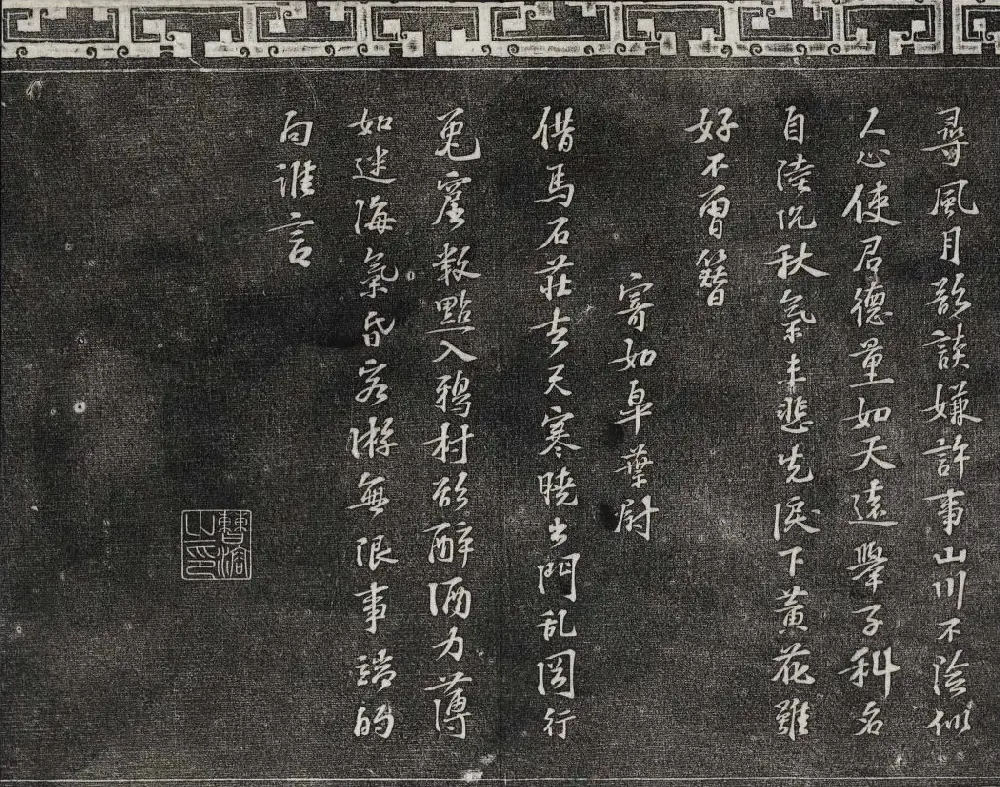 尋風月欲談嫌許事山川不險似
人心使君德量如天遠舉子科名
自陸沉秋氣未悲先淚下黃花雖
好不曾簪
寄如皋葉尉
借馬石莊去天寒曉出門乱岡行
兎窟数點入鴉村欲醉酒力薄
如迷海氣昏客游無限事端的
向誰言